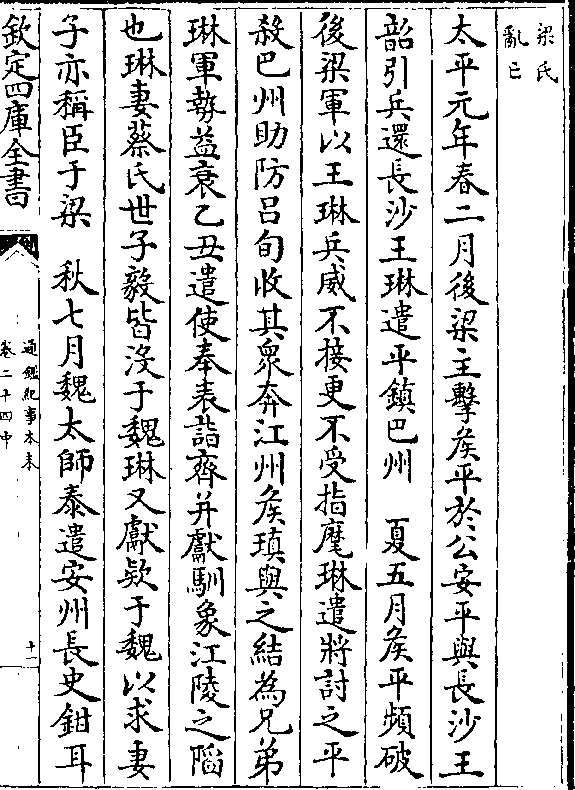 梁氏
亂亡
太平元年春二月後梁主擊矦平於公安平與長沙王
韶引兵還長沙王琳遣平鎮巴州　夏五月矦平頻破
後梁軍以王琳兵威不接更不受指麾琳遣將討之平
殺巴州助防呂旬收其衆奔江州矦瑱與之結為兄弟
琳軍勢益衰乙丑遣使奉表詣齊并獻馴象江陵之陷
也琳妻蔡氏世子毅皆沒于魏琳又獻欵于魏以求妻
子亦稱臣于梁　秋七月魏太師泰遣安州長史鉗耳
欽定四庫全書
通鑑紀事本末
卷二十四中
十二